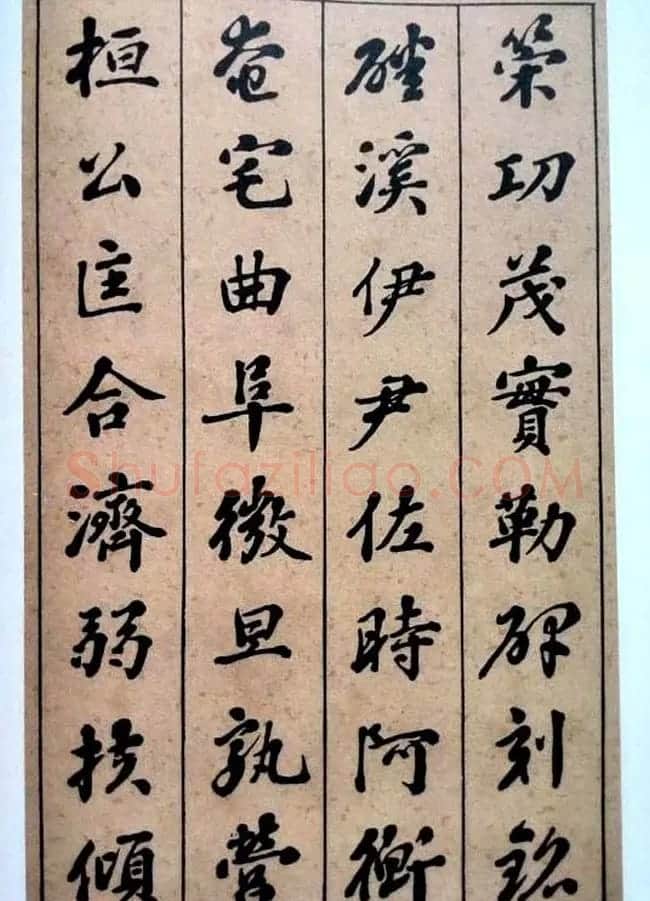 策功茂實勒碑刻銘
磻溪伊尹佐時阿衡
奄宅曲阜微旦孰營
桓公匡合濟弱扶傾
Shufaziliao.COM